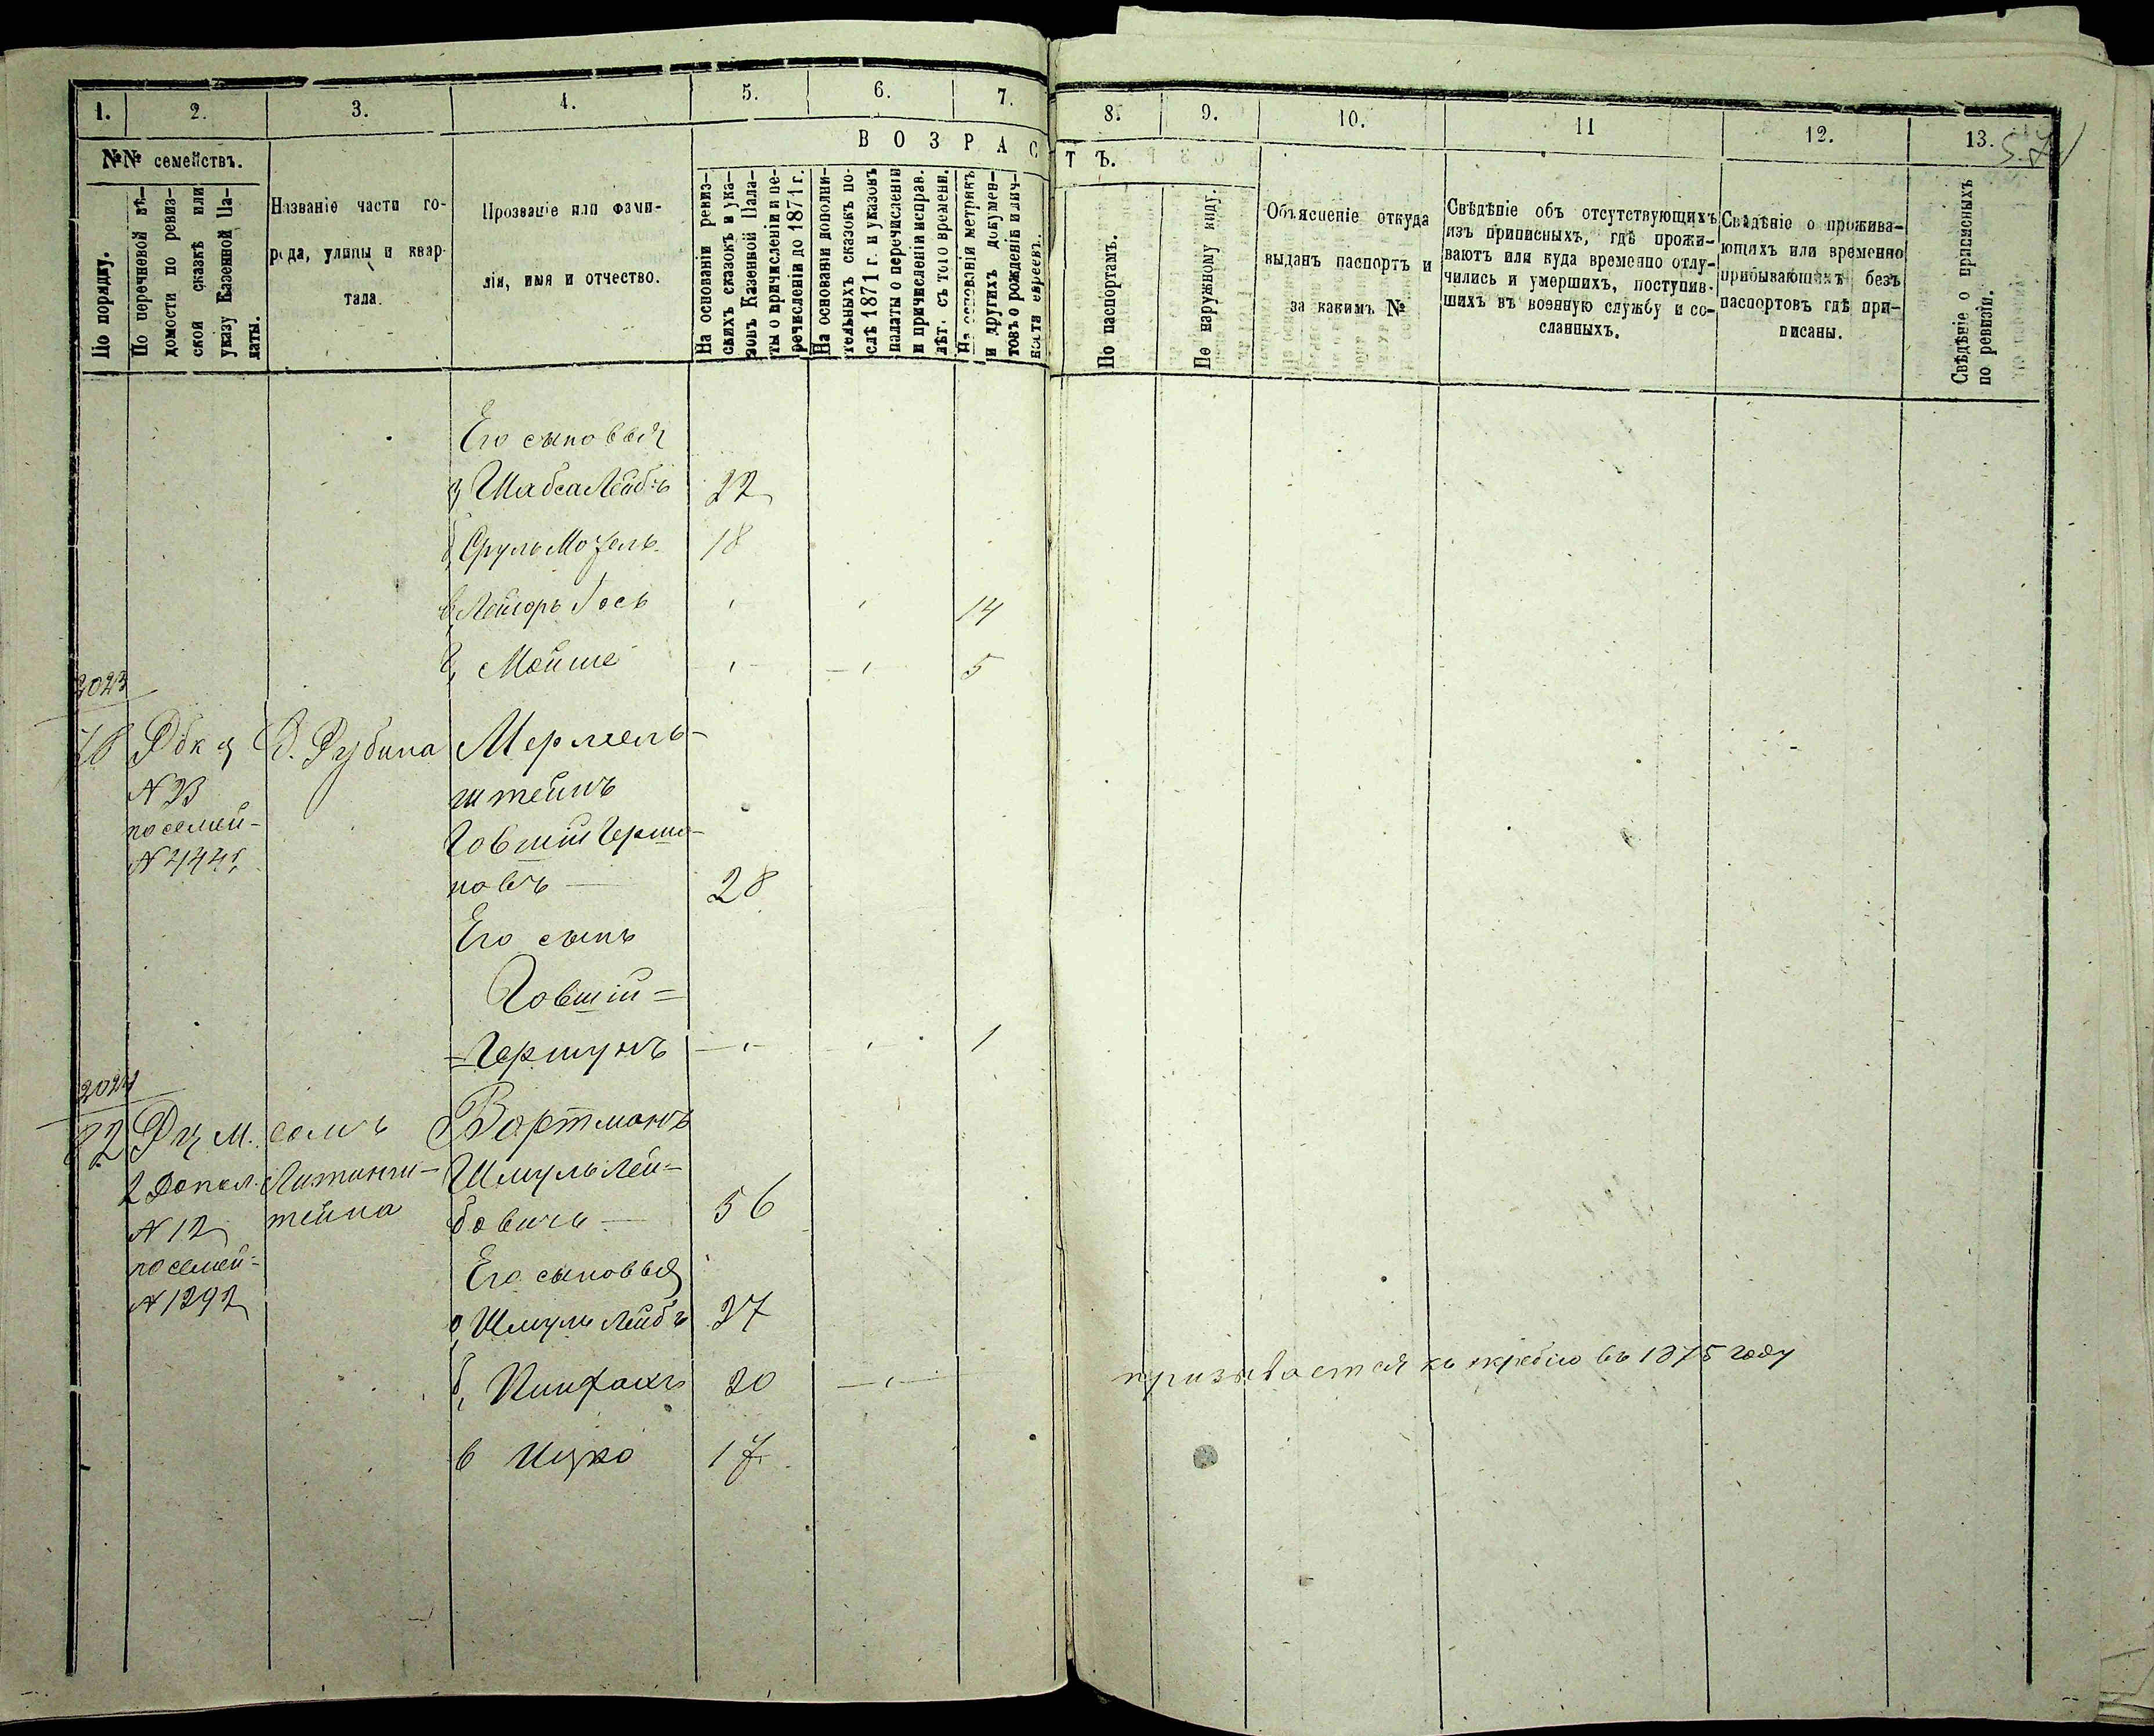 1.
2.
3.
4.
5.
6.
7.
8.
9.
10.
11
12.
13.
№№ семействъ.
По порядку.
По перечневой вѣ-
домости по ревиз-
ской сказкѣ или
указу Казенной Па-
латы.
Названіе части го-
рода, улицы и квар-
тала.
Прозваніе или фами-
лія, имя и отчество.
ВОЗРАС
ТЪ.
На основаніи ревиз-
скихъ сказокъ и ука-
зовъ Казенной Пала-
ты о причисленіи и пе-
речисленіи до 1871 г.
На основаніи дополни-
тельныхъ сказокъ по-
слѣ 1871 г. и указовъ
палаты о перечисленіи
и причисленіи исправ.
лѣт. съ того времени.
На основаніи метрикъ
и другихъ докумен-
товъ о рожденіи и лич-
ности евреевъ.
По паспортамъ.
По наружному виду.
Объясненіе откуда
выданъ паспортъ и
за какимъ №
Свѣдѣніе объ отсутствующихъ
изъ приписныхъ, гдѣ прожи-
ваютъ или куда временно отлу-
чились и умершихъ, поступив-
шихъ въ военную службу и со-
сланныхъ.
Свѣдѣніе о прожива-
ющихъ или временно
прибывающихъ безъ
паспортовъ гдѣ при-
писаны.
Свѣдѣніе о приписныхъ
по ревизіи.
Его сыновья
а, Шабса Лейбъ 22
б, Сруль Мотель 18
в, Лейзоръ Іось 14
г, Мойше 5
2023
д. Рубина Мермель-
N 23 штейнъ
по семей- Говшій Гершо-
N 444 новъ 28
Его сынъ
Говшій=
=Гершунъ 1
2024
82 Рц М. домъ Вортманъ
2 Допол. Литинш- Шмуль Лей=
N 12 тейна бовичъ 56
по семей= Его сыновья
N 1292 а, Шмуль Лейбъ 27
б, Пинхасъ 20 призывается къ жребію въ 1875 году
в Ицко 17